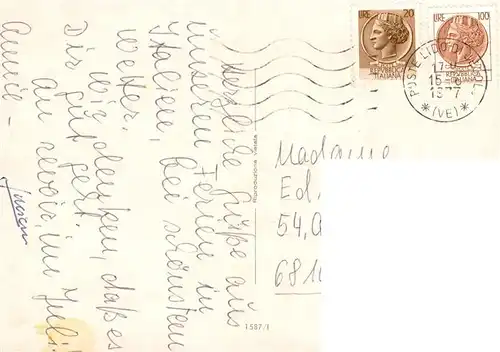 LIRE 20
LIRE 100
REPUBBLICA ITALIANA
REPUBBLICA ITALIANA
POSTE LIDO DI
15-6
1977
*(VE)*
Herzliche Grüße aus
unseren Ferien in
Italien, bei schönstem
Wetter.
Wir denken, daß es
Dir gut geht.
au revoir, im Juli!
Annie -
Riproduzione vietata
1587/1
Madame
Ed.
54,
681